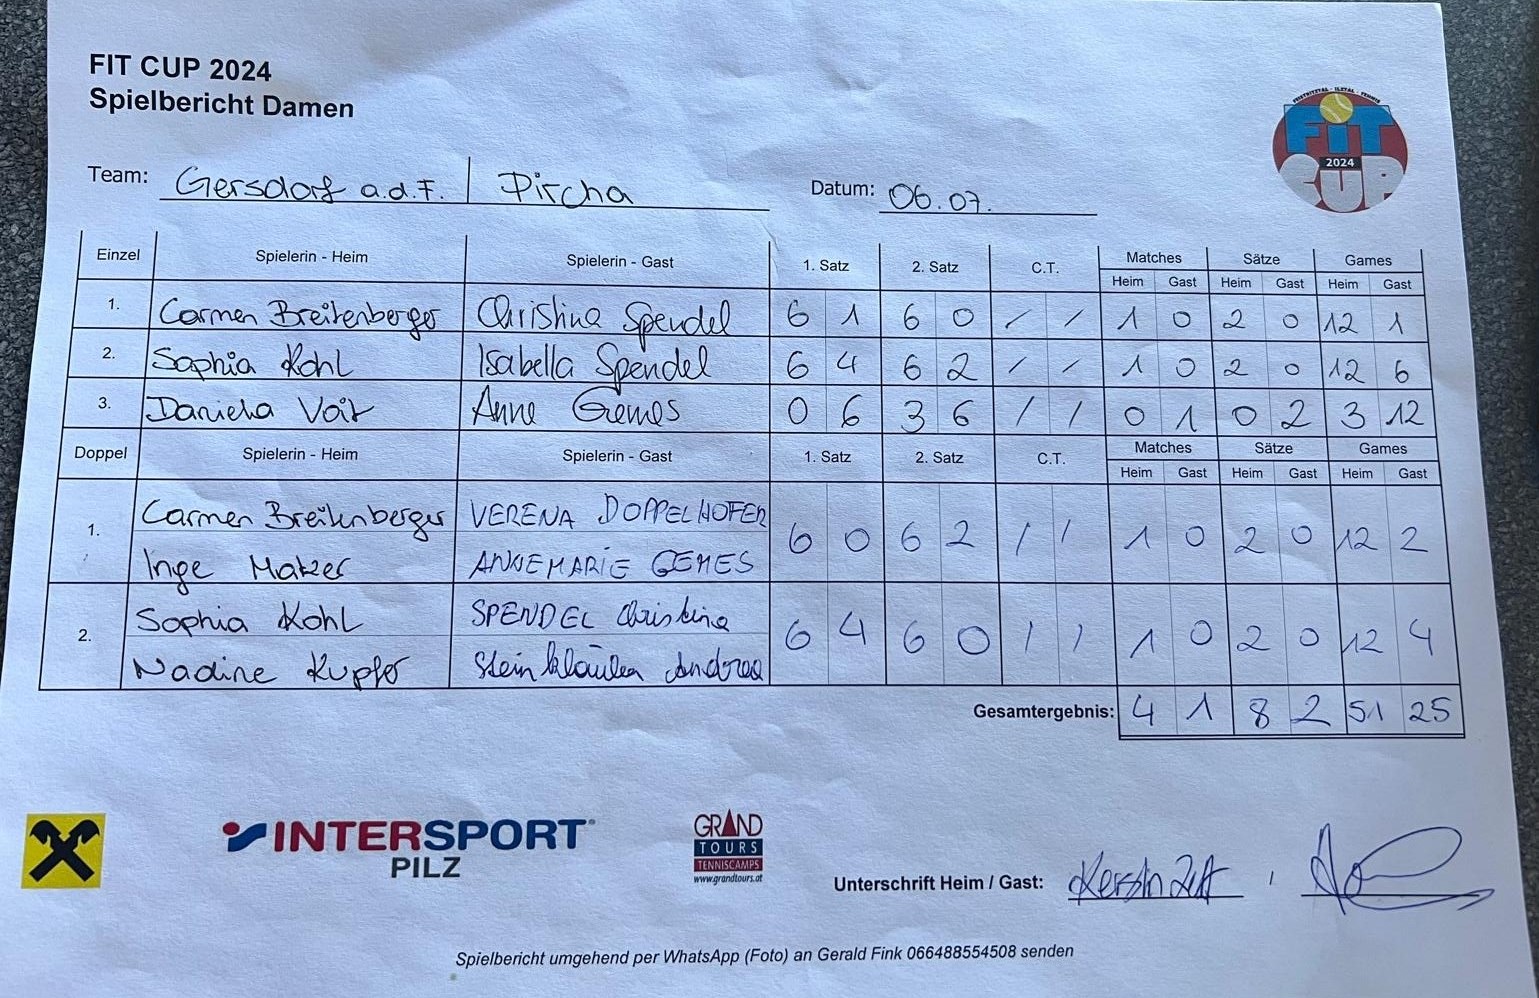 FIT CUP 2024
Spielbericht Damen
FEISTRITZTAL - ILZTAL - TENNIS
FiT
2024
CUP
Team: Gersdorf a.d.F. | Pircha Datum: 06.07.
Einzel Spielerin - Heim Spielerin - Gast 1. Satz 2. Satz C.T. Matches Sätze Games
Heim Gast Heim Gast Heim Gast
1. Carmen Breitenberger Christina Spendel 6 1 6 0 / / 1 0 2 0 12 1
2. Sophia Kohl Isabella Spendel 6 4 6 2 / / 1 0 2 0 12 6
3. Daniela Voit Anne Gemes 0 6 3 6 / / 0 1 0 2 3 12
Doppel Spielerin - Heim Spielerin - Gast 1. Satz 2. Satz C.T. Matches Sätze Games
Heim Gast Heim Gast Heim Gast
1. Carmen Breitenberger VERENA DOPPELHOFER 6 0 6 2 / / 1 0 2 0 12 2
Inge Maser ANNEMARIE GEMES
2. Sophia Kohl SPENDEL Christina 6 4 6 0 / / 1 0 2 0 12 4
Nadine Kupfer Andrea
Gesamtergebnis: 4 1 8 2 51 25
INTERSPORT
PILZ
GRAND
TOURS
TENNISCAMPS
www.grandtours.at
Unterschrift Heim / Gast: /
Spielbericht umgehend per WhatsApp (Foto) an Gerald Fink 066488554508 senden